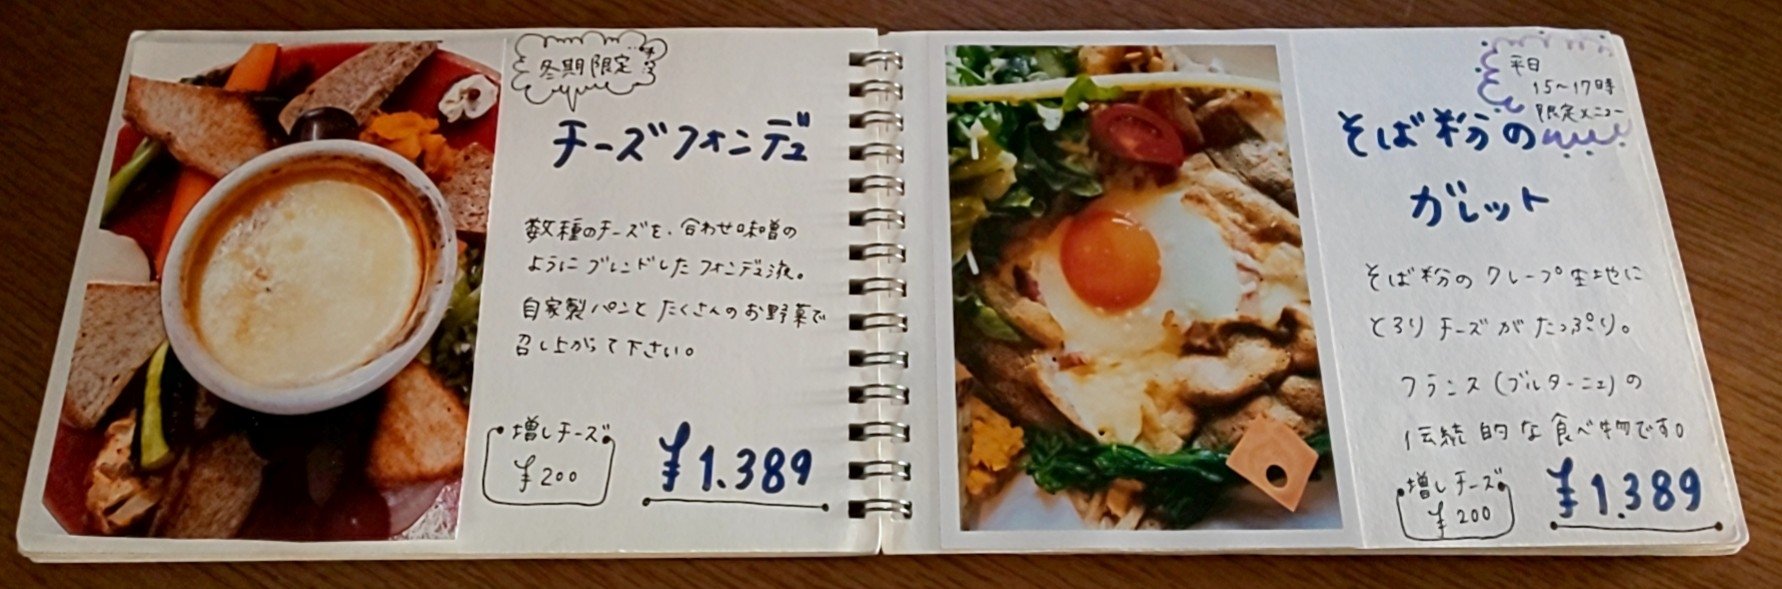 冬期限定
チーズフォンデュ
数種のチーズを、合わせ味噌の
ようにブレンドしたフォンデュ液。
自家製パンとたくさんのお野菜で
召し上がって下さい。
増しチーズ
¥200
¥1.389
平日
15〜17時
限定メニュー
そば粉の
ガレット
そば粉のクレープ生地に
とろりチーズがたっぷり。
フランス(ブルターニュ)の
伝統的な食べ物です。
増しチーズ
¥200
¥1.389